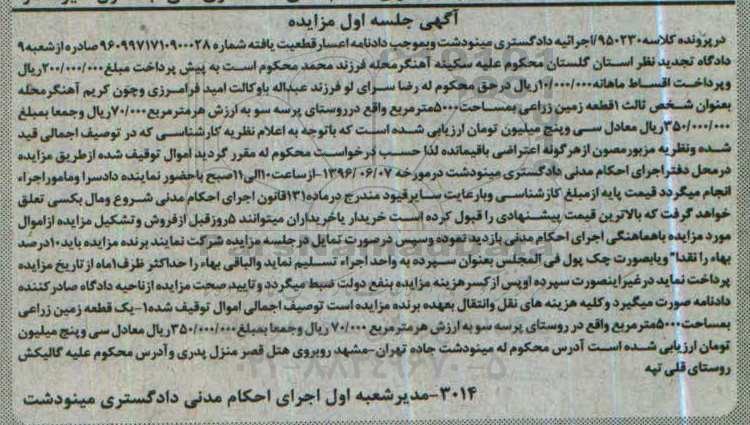 آگهی جلسه اول مزایده
درپرونده کلاسه ۹۵۰۲۳۰/اجرائیه دادگستری مینودشت وبموجب دادنامه اعسار قطعیت یافته شماره ۹۶۰۹۹۷۱۷۱۰۹۰۰۰۲۸ صادره ازشعبه ۹
دادگاه تجدید نظر استان گلستان محکوم علیه سکینه آهنگرمحله فرزند محمد محکوم است به پیش پرداخت مبلغ ۲۰۰/۰۰۰/۰۰۰ریال
وپرداخت اقساط ماهانه ۱۰/۰۰۰/۰۰۰ریال درحق محکوم له رضا سرای لو فرزند عبداله باوکالت امید فرامرزی وچون کریم آهنگرمحله
بعنوان شخص ثالث ۱قطعه زمین زراعی بمساحت ۵۰۰۰مترمربع واقع درروستای پرسه سو به ارزش هرمترمربع ۷۰/۰۰۰ریال وجمعا بمبلغ
۳۵۰/۰۰۰/۰۰۰ریال معادل سی وپنج میلیون تومان ارزیابی شده است که باتوجه به اعلام نظریه کارشناسی که در توصیف اجمالی قید
شده ونظریه مزبورمصون ازهرگونه اعتراضی باقیمانده لذا حسب درخواست محکوم له مقرر گردید اموال توقیف شده ازطریق مزایده
درمحل دفتراجرای احکام مدنی دادگستری مینودشت درمورخه ۱۳۹۶/۰۶/۰۷-ازساعت۱۰الی۱۱صبح باحضور نماینده دادسرا وماموراجراء
انجام میگردد قیمت پایه ازمبلغ کارشناسی وبارعایت سایرقیود مندرج درماده ۱۳۱قانون اجرای احکام مدنی شروع ومال بکسی تعلق
خواهد گرفت که بالاترین قیمت پیشنهادی را قبول کرده است خریدار یاخریداران میتوانند ۵روزقبل ازفروش وتشکیل مزایده ازاموال
مورد مزایده باهماهنگی اجرای احکام مدنی بازدید نموده وسپس درصورت تمایل درجلسه مزایده شرکت نمایند برنده مزایده باید ۱۰درصد
بهاء را نقدا" ویابصورت چک پول فی المجلس بعنوان سپرده به واحد اجراء تسلیم نماید والباقی بهاء را حداکثر ظرف ۱ماه از تاریخ مزایده
پرداخت نماید درغیراینصورت سپرده اوپس ازکسرهزینه مزایده بنفع دولت ضبط میگردد وتایید صحت مزایده ازناحیه دادگاه صادرکننده
دادنامه صورت میگیرد وکلیه هزینه های نقل وانتقال بعهده برنده مزایده است توصیف اجمالی اموال توقیف شده ۱-یک قطعه زمین زراعی
بمساحت ۵۰۰۰مترمربع واقع در روستای پرسه سو به ارزش هرمترمربع ۷۰/۰۰۰ ریال وجمعا بمبلغ ۳۵۰/۰۰۰/۰۰۰ریال معادل سی وپنج میلیون
تومان ارزیابی شده است آدرس محکوم له مینودشت جاده تهران-مشهد روبروی هتل قصر منزل پدری وآدرس محکوم علیه گالیکش
روستای قلی تپه
۳۰۱۴-مدیرشعبه اول اجرای احکام مدنی دادگستری مینودشت